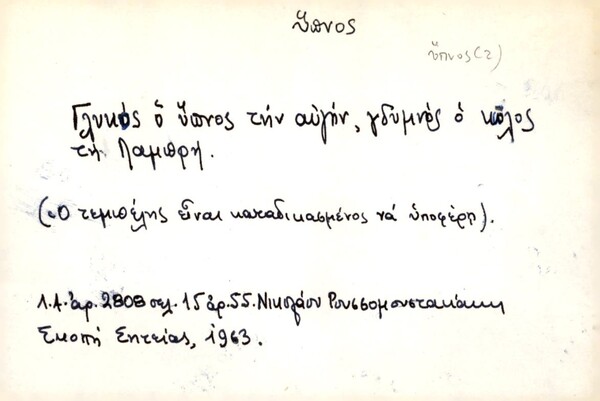 ὕπνος
ὕπνος (2)
Γλυκός ὁ ὕπνος τήν αὐγήν, γδυμνός ὁ κῶλος
τή Λαμπρή.
(Ὁ τεμπέλης εἶναι καταδικασμένος νά ὑποφέρῃ).
Λ.Α. ἀρ. 2808 σελ. 15 ἀρ. 55. Νικολάου Ρουσσομουστακάκη
Σκοπή Σητείας, 1963.